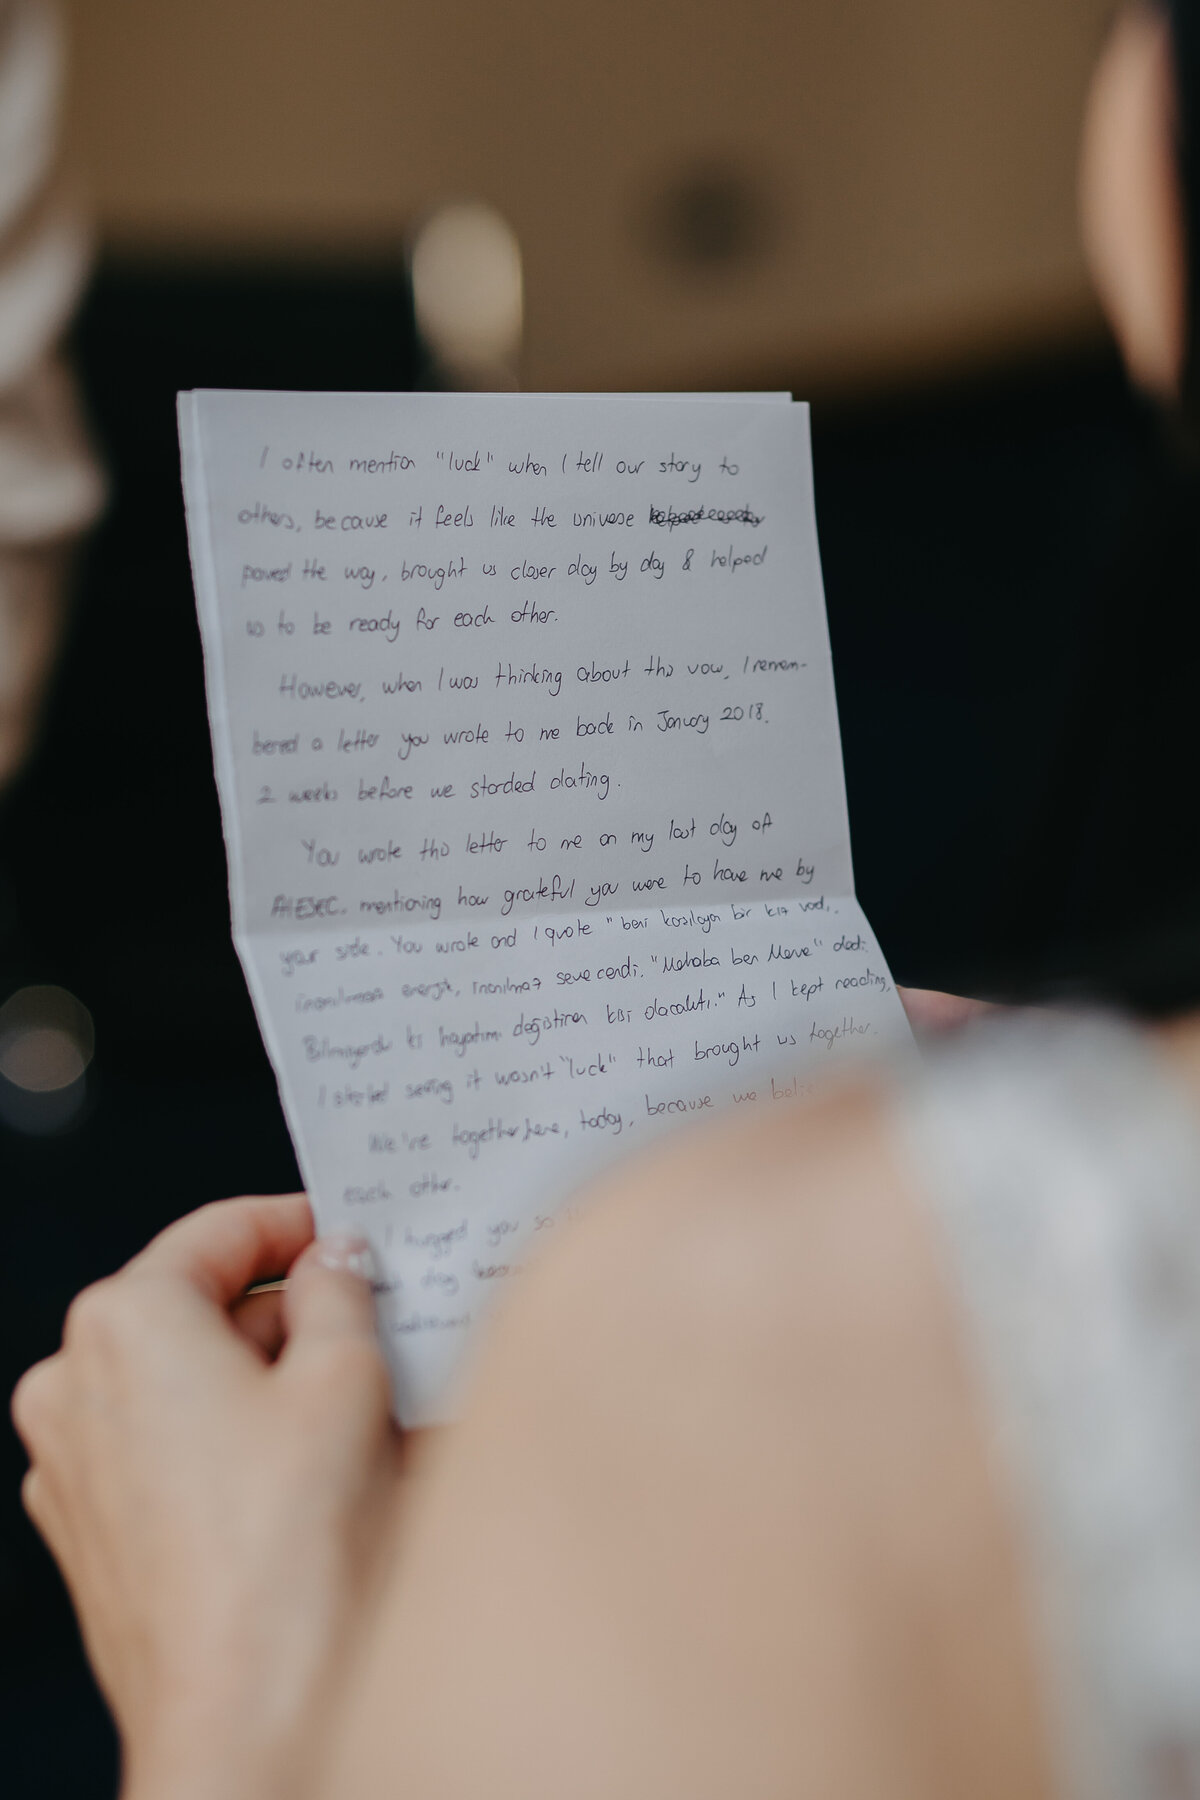 I often mention "luck" when I tell our story to
others, because it feels like the universe
paved the way, brought us closer day by day & helped
us to be ready for each other.
However, when I was thinking about this vow, I remem-
bered a letter you wrote to me back in January 2018.
2 weeks before we starded dating.
You wrote this letter to me on my last day of
AIESEC, mentioning how grateful you were to have me by
your side. You wrote and I quote "beni karşılayan bir kız vardı,
inanılmaz enerjik, inanılmaz sevecendi. "Merhaba ben Merve" dedi.
Bilmiyordum ki hayatımı değiştiren kişi olacaktı." As I kept reading,
I started seeing it wasn't "luck" that brought us together.
We're together, here, today, because we
each other.
I hugged you so
day